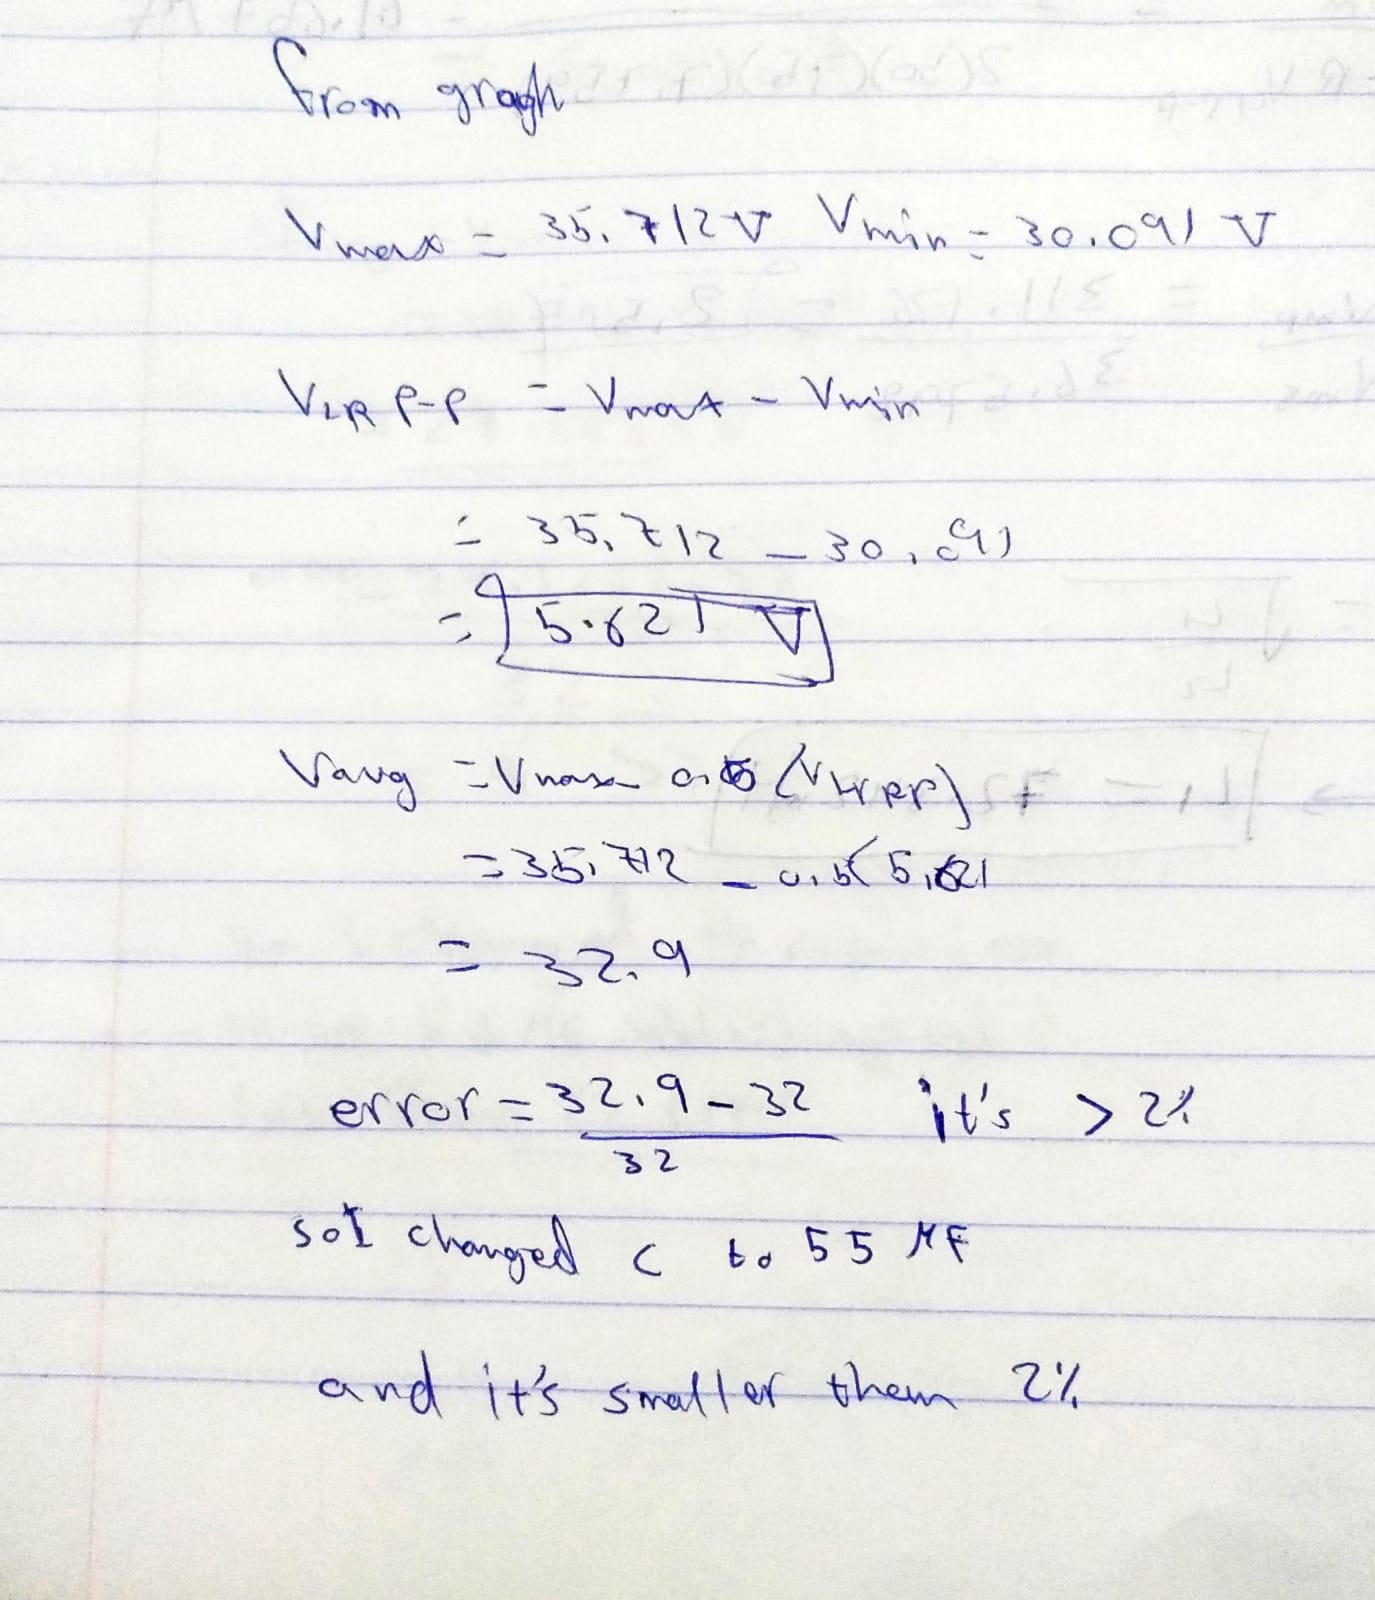 from graph
Vmax = 35.712 V Vmin = 30.091 V
VLR P-P = Vmax - Vmin
= 35.712 - 30.091
= 5.621 V
Vavg = Vmax 0.5 (VLr PP)
= 35.712 - 0.5( 5.621
= 32.9
error = 32.9 - 32 it's > 2%
32
so I changed C to 55 MF
and it's smaller them 2%